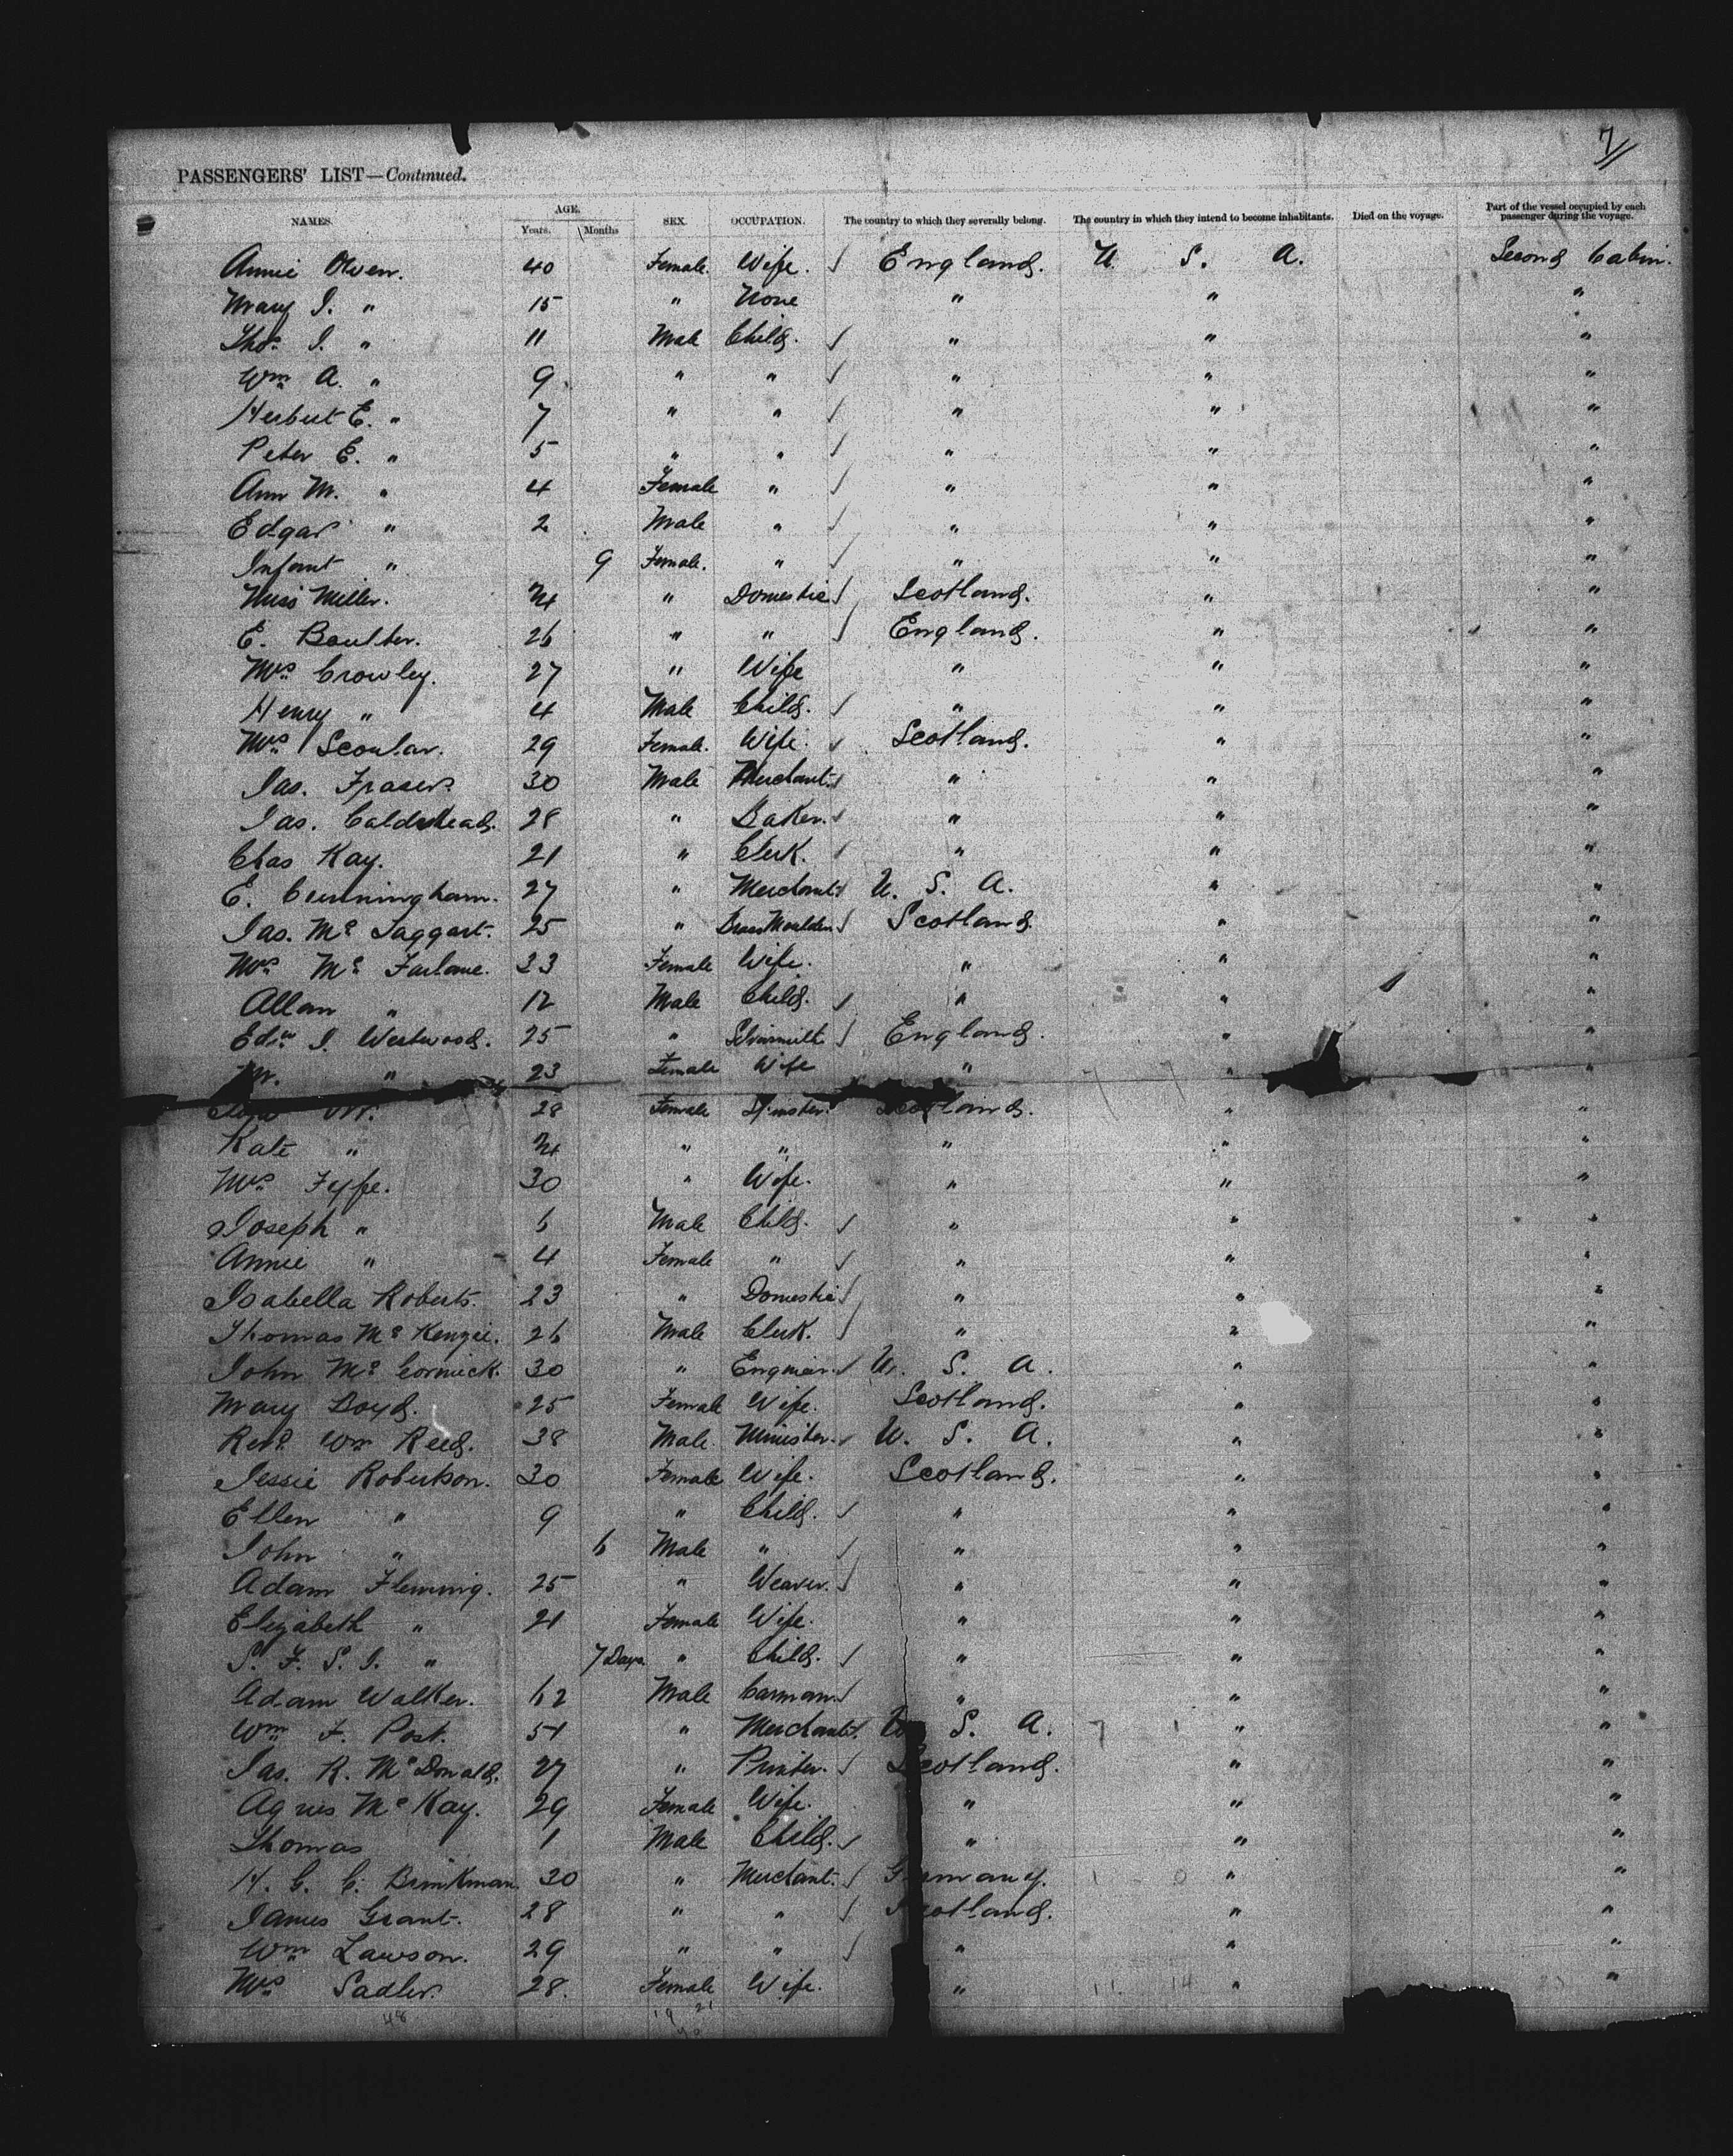 7
PASSENGERS' LIST—Continued.
NAMES. AGE. Years. Months SEX. OCCUPATION. The country to which they severally belong. The country in which they intend to become inhabitants. Died on the voyage. Part of the vessel occupied by each passenger during the voyage.
Annie Owen. 40 Female. Wife. ✓ England. U. S. A. Second Cabin.
Mary J. " 15 " None " " "
Thos. J. " 11 Male Child. ✓ " " "
Wm A. " 9 " " ✓ " " "
Herbert E. " 7 " " ✓ " " "
Peter E. " 5 " " ✓ " " "
Ann M. " 4 Female " ✓ " " "
Edgar " 2 Male " ✓ " " "
Infant " 9 Female. " ✓ " " "
Miss Miller. 24 " Domestic ✓ Scotland. " "
E. Boulter. 26 " " ✓ England. " "
Mrs Crowley. 27 " Wife " " "
Henry " 4 Male Child. ✓ " " "
Mrs Scoular. 29 Female. Wife. ✓ Scotland. " "
Jas. Fraser. 30 Male Merchant. ✓ " " "
Jas. Calderhead. 28 " Baker. ✓ " " "
Chas Kay. 21 " Clerk. ✓ " " "
E. Cunningham. 27 " Merchant. ✓ U. S. A. " "
Jas. Mc Taggart. 25 " Brass Moulder. ✓ Scotland. " "
Mrs Mc Farlane. 23 Female Wife. " " "
Allan " 12 Male Child. ✓ " " "
Edw. J. Westwood. 25 " ✓ England. " "
M. " 23 Female Wife " " "
28 Female Spinster. Scotland. " "
Kate " 24 " " " " "
Mrs Fyfe. 30 " Wife. " " "
Joseph " 6 Male Child. ✓ " " "
Annie " 4 Female " ✓ " " "
Isabella Roberts. 23 " Domestic ✓ " " "
Thomas Mc Kenzie. 26 Male Clerk. ✓ " " "
John Mc Cormick. 30 " Engineer. ✓ U. S. A. " "
Mary Boyd. 25 Female Wife. Scotland. " "
Revd Wm Reed. 38 Male. Minister. ✓ U. S. A. " "
Jessie Robertson. 30 Female Wife. Scotland. " "
Ellen " 9 " Child. ✓ " " "
John " 6 Male " ✓ " " "
Adam Fleming. 25 " Weaver. ✓ " " "
Elizabeth " 21 Female Wife. " " "
S. F. S. J. " 7 Days " Child. ✓ " " "
Adam Walker. 62 Male Carman. ✓ " " "
Wm F. Post. 51 " Merchant. ✓ U. S. A. " "
Jas. R. McDonald. 27 " Printer. ✓ Scotland. " "
Agnes Mc Kay. 29 Female Wife. " " "
Thomas 1 Male Child. ✓ " " "
H. G. C. Brinkman. 30 " Merchant. ✓ Germany. " "
James Grant. 28 " " ✓ Scotland. " "
Wm Lawson. 29 " " ✓ " " "
Mrs Sadler. 28. Female Wife. " 11 14 " "
48 19 21